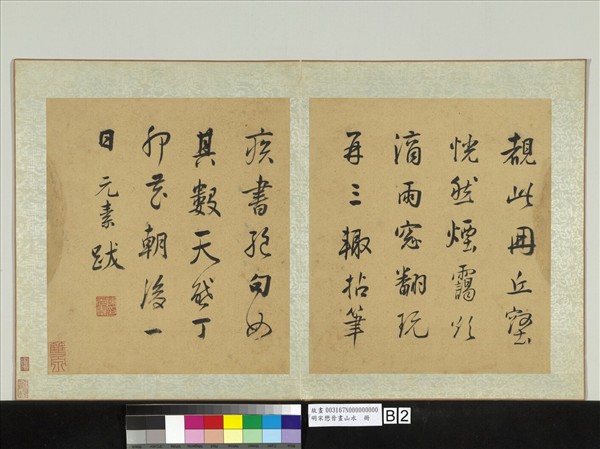 觀此冊丘壑
恍然煙靄欲
滴雨窓翻玩
再三輙拈筆
疾書絕句如
其數天啟丁
卯花朝後一
日 元素跋
故畫 003167N000000000
明宋懋晉畫山水 冊
B 2